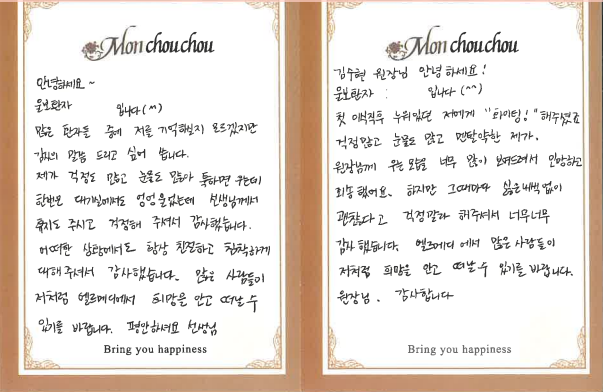 Mon chouchou
안녕하세요~
울보환자 입니다 (^^)
많은 환자들 중에 저를 기억해실지 모르겠지만
감사의 말씀 드리고 싶어 씁니다.
제가 걱정도 많고 눈물도 많아 툭하면 우는데
한번은 대기실에서도 엉엉 울었는데 선생님께서
휴지도 주시고 걱정해 주셔서 감사했습니다.
어떠한 상황에서도 항상 친절하고 침착하게
대해주셔서 감사했습니다. 많은 사람들이
저처럼 엘르메디에서 희망을 안고 떠날 수
있기를 바랍니다. 평안하세요 선생님
Bring you happiness
Mon chouchou
김수현 원장님 안녕하세요!
울보환자 : 입니다 (^^)
첫 이식직후 누워있던 저에게 "화이팅!" 해주셨죠
걱정많고 눈물도 많고 멘탈약한 제가.
원장님께 우는 모습을 너무 많이 보여드려서 민망하고
죄송했어요. 하지만 그때마다 싫은내색없이
괜찮다고 걱정말라 해주셔서 너무너무
감사했습니다. 엘르메디에서 많은 사람들이
저처럼 희망을 안고 떠날 수 있기를 바랍니다.
원장님. 감사합니다
Bring you happiness